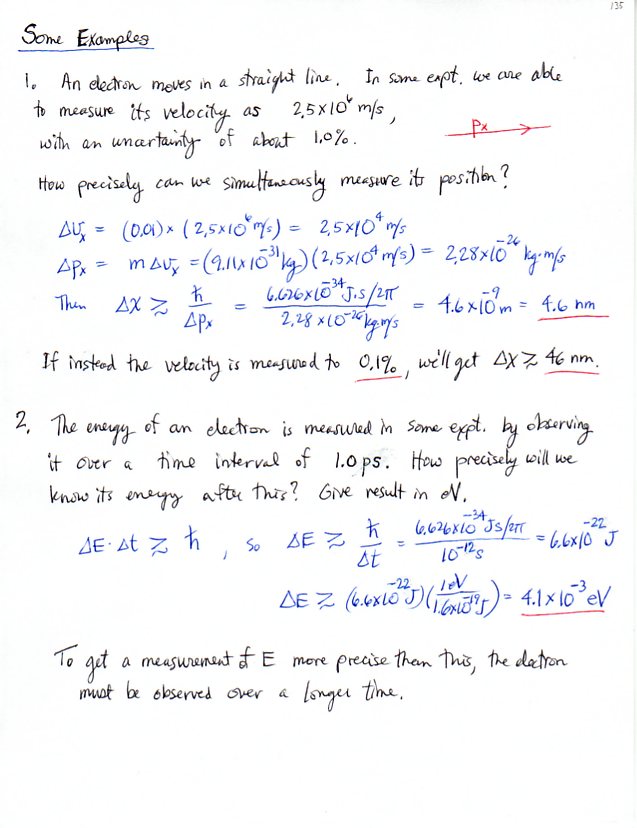 135
Some Examples
1. An electron moves in a straight line. In some expt. we are able
to measure its velocity as 2.5×10⁶ m/s,
with an uncertainty of about 1.0%.
Px
How precisely can we simultaneously measure its position?
ΔUx = (0.01) × (2.5×10⁶ m/s) = 2.5×10⁴ m/s
ΔPx = m ΔUx = (9.11×10⁻³¹ kg)(2.5×10⁴ m/s) = 2.28×10⁻²⁶ kg·m/s
Then Δx ≳ ħ/ΔPx = 6.626×10⁻³⁴ J.s/2π / 2.28×10⁻²⁶ kg m/s = 4.6×10⁻⁹ m = 4.6 nm
If instead the velocity is measured to 0.1%, we'll get Δx ≳ 46 nm.
2. The energy of an electron is measured in some expt. by observing
it over a time interval of 1.0 ps. How precisely will we
know its energy after this? Give result in eV.
ΔE·Δt ≳ ħ , so ΔE ≳ ħ/Δt = 6.626×10⁻³⁴ Js/2π / 10⁻¹² s = 6.6×10⁻²² J
ΔE ≳ (6.6×10⁻²² J)(1eV/1.6×10⁻¹⁹ J) = 4.1×10⁻³ eV
To get a measurement of E more precise than this, the electron
must be observed over a longer time.